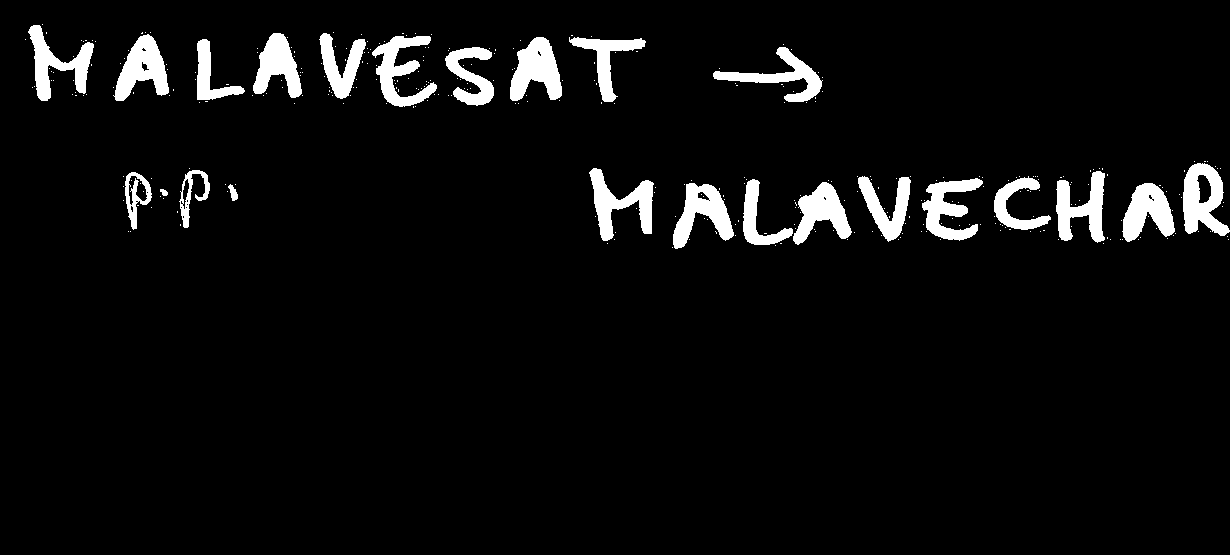 MALAVESAT →
p.p. MALAVECHAR